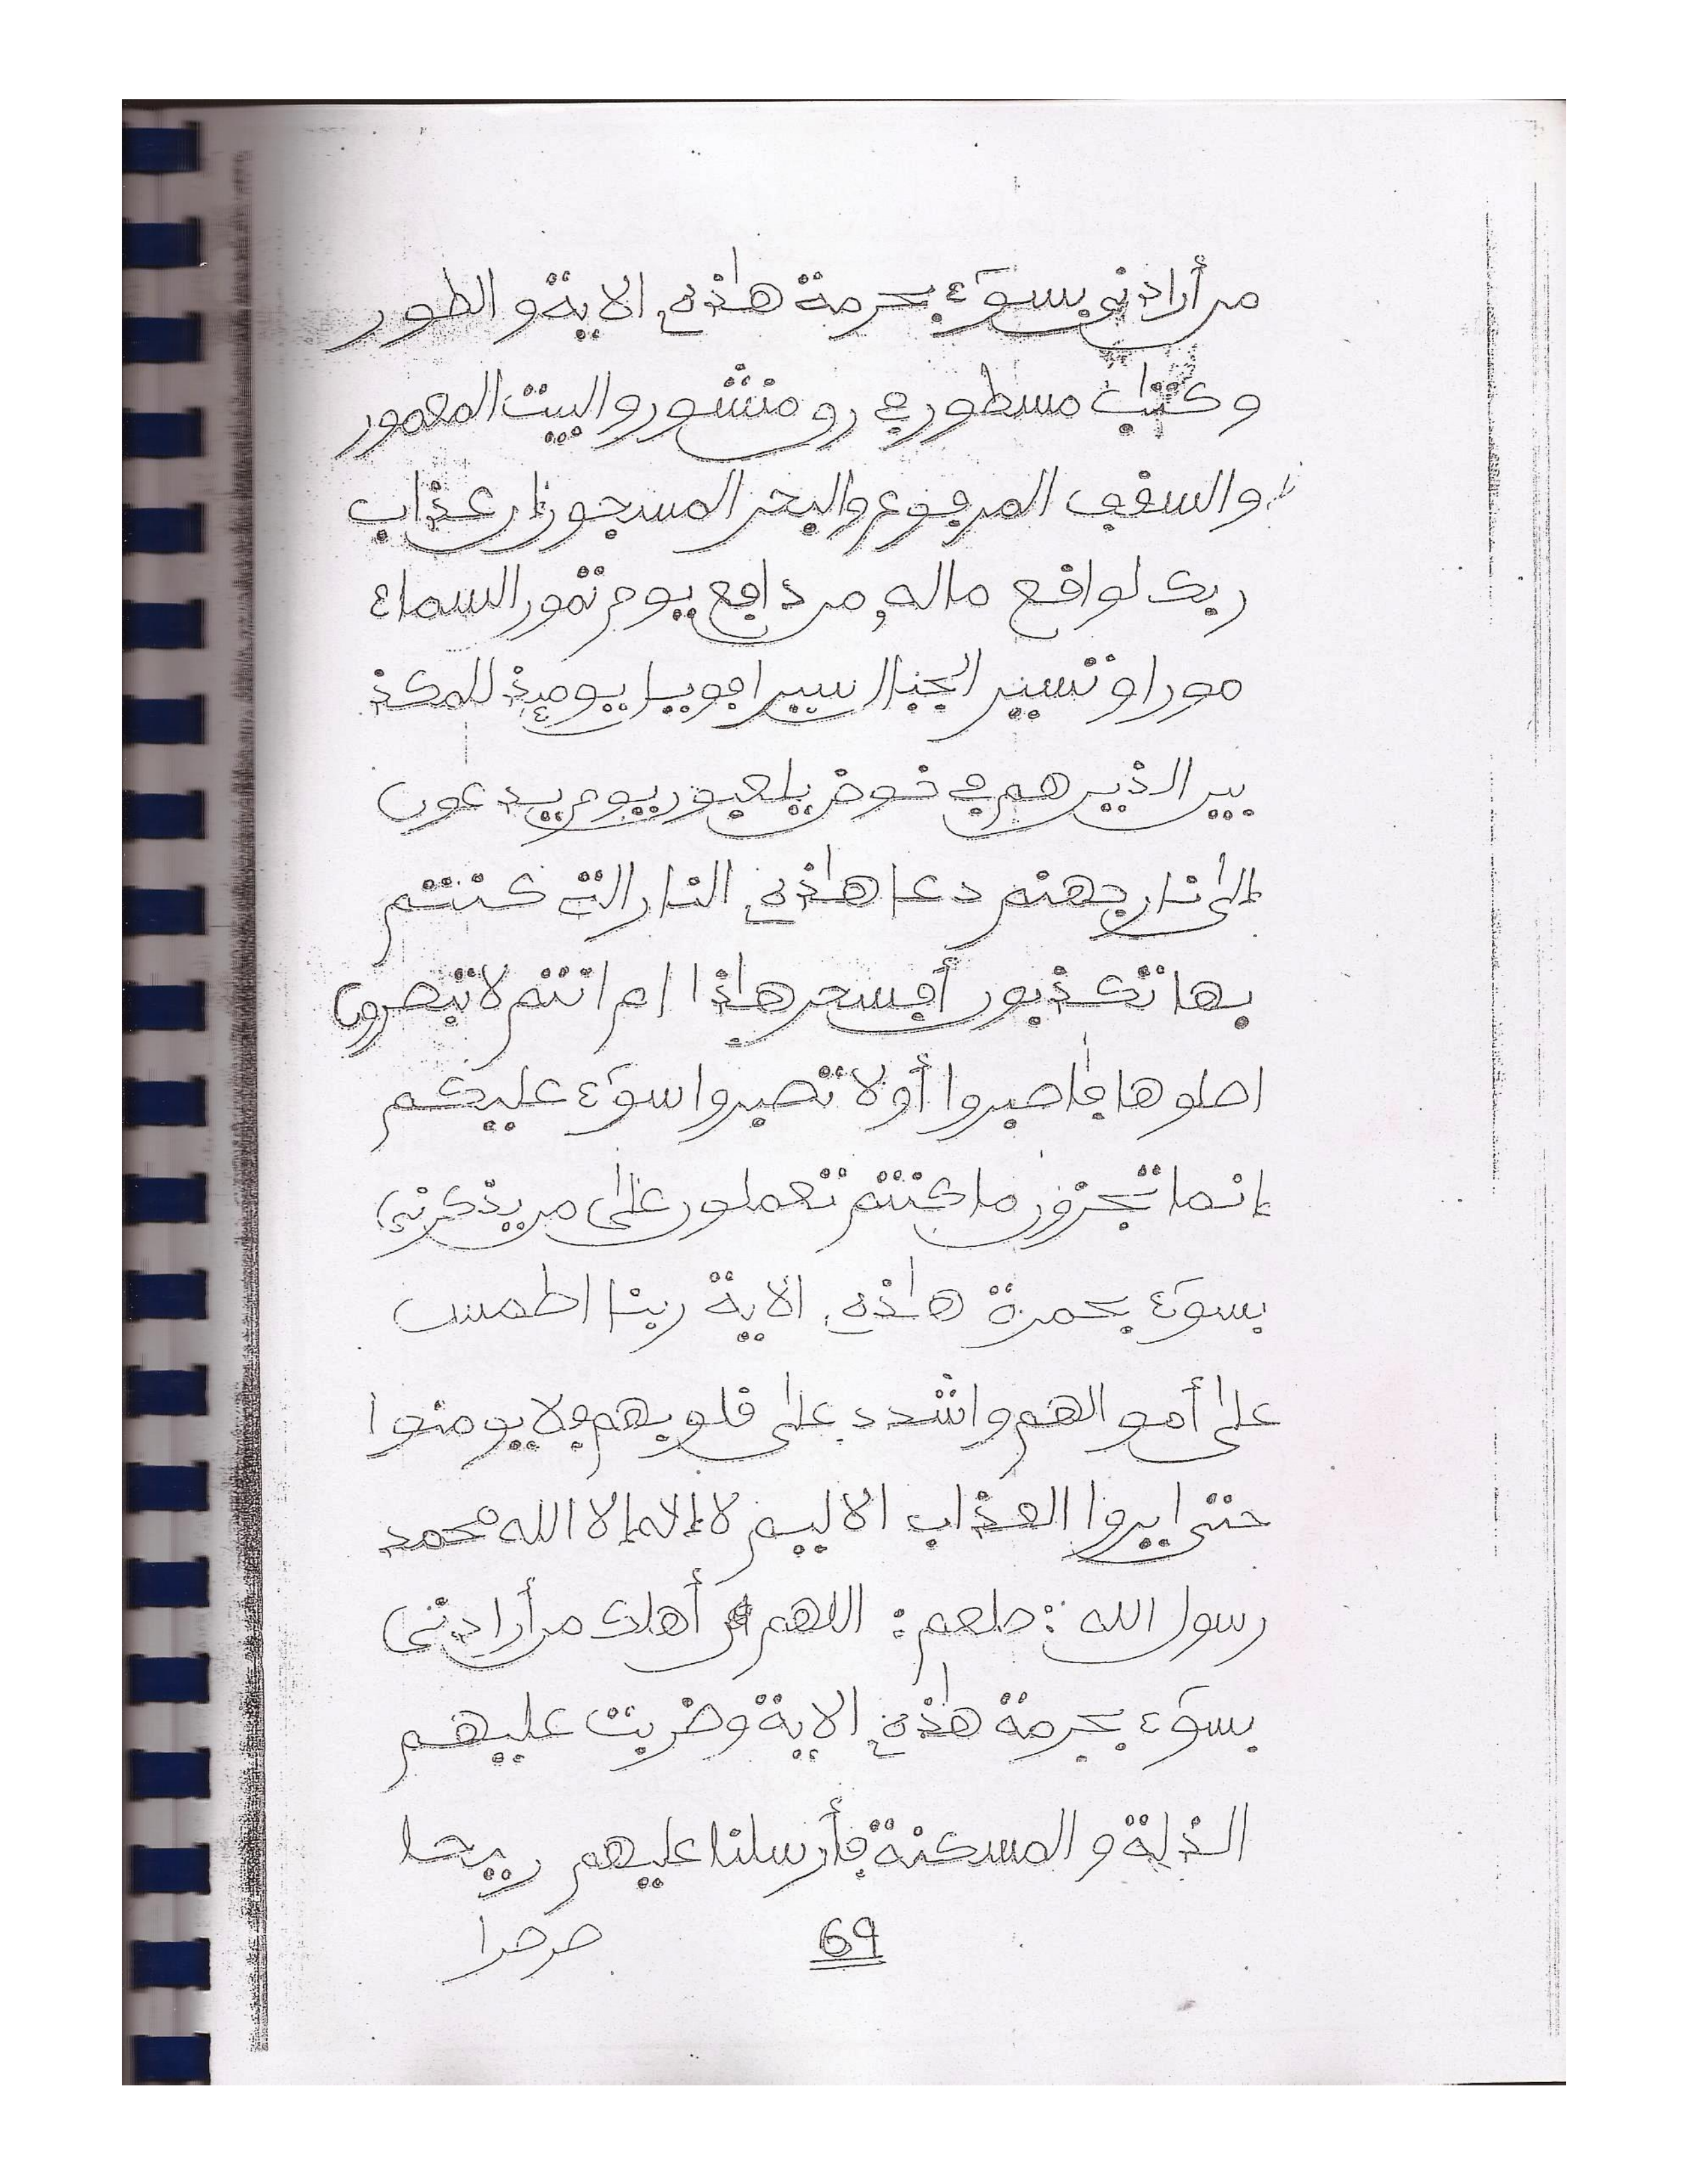 من أرادني بسوٓء بحرمة هٰذه الاية والطور
وكتٰب مسطور في رق منشور والبيت المعمور
والسقف المرفوع والبحر المسجور إن عذاب
ربك لواقع ماله من دافع يوم تمور السماء
مورا وتسير الجبال سيرا فويل يومئذ للمكذ
بين الذين هم في خوض يلعبون يوم يدعون
إلى نار جهنم دعا هٰذه النار التي كنتم
بها تكذبون أفسحر هٰذا ام انتم لا تبصرون
اصلوها فاصبروا أولا تصبروا سوٓء عليكم
إنما تجزون ما كنتم تعملون على من يذكرني
بسوٓء بحمرة هٰذه الاية ربنا اطمس
على أموالهم واشدد على قلوبهم فلا يومنوا
حتى يروا العذاب الاليم لا إله إلا الله محمد
رسول الله : صلعم : اللهم أهلك من أرادني
بسوٓء بحرمة هٰذه الاية وضربت عليهم
الذلة والمسكنة فأرسلنا عليهم ريحا
صرصرا
69